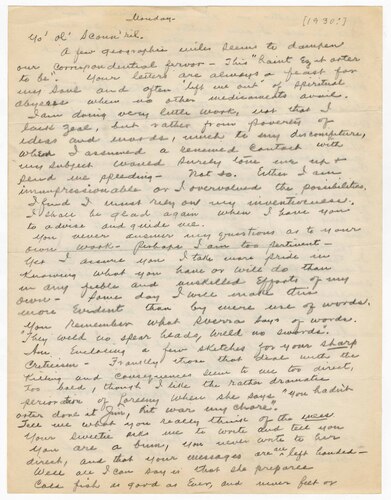 Monday-
[1930?]
Yo' ol' Scoun'rel.
A few geographic miles seems to dampen
our correspondential fervor - This "haint Ez it orter
to be". Your letters are always a feast for
my soul and often lift me out of spiritual
abysses when no other medicaments avail.
I am doing very little work, not that I
lack zeal, but rather from poverty of
ideas and moods, much to my discomfiture,
When I assumed a renewed contact with
my subject would surely tone me up &
send me speeding - Not so. Either I am
unimpressionable or I overvalued the possibilities.
I find I must rely on my inventiveness.
I shall be glad again when I have you
to advise and guide me.
You never answer my questions as to your
own work - Perhaps I am too pertinent -
Yet I assure you I take more pride in
Knowing what you have or will do than
in any feeble and unskilled efforts of my
own - Some day I will make this
more Evident than by mere use of words.
You remember what says of words.
"They weild no spear heads, weild no swords."
Am Enclosing a few sketches for your sharp
Criticism - Frankly those that deal with the
Killing and consequences seem to me too direct,
Too bald, though I like the rather dramatic
of when she says "you hadn't
orter done it Jim, hit war my chore".
Tell me what you really think of the
Your Sweetie asks me to write and tell you
You are a bum, you never write to her
direct, and that your messages are left handed -
Well all I can say is that she prepares
Cold fish is good as Ever, and never frets or